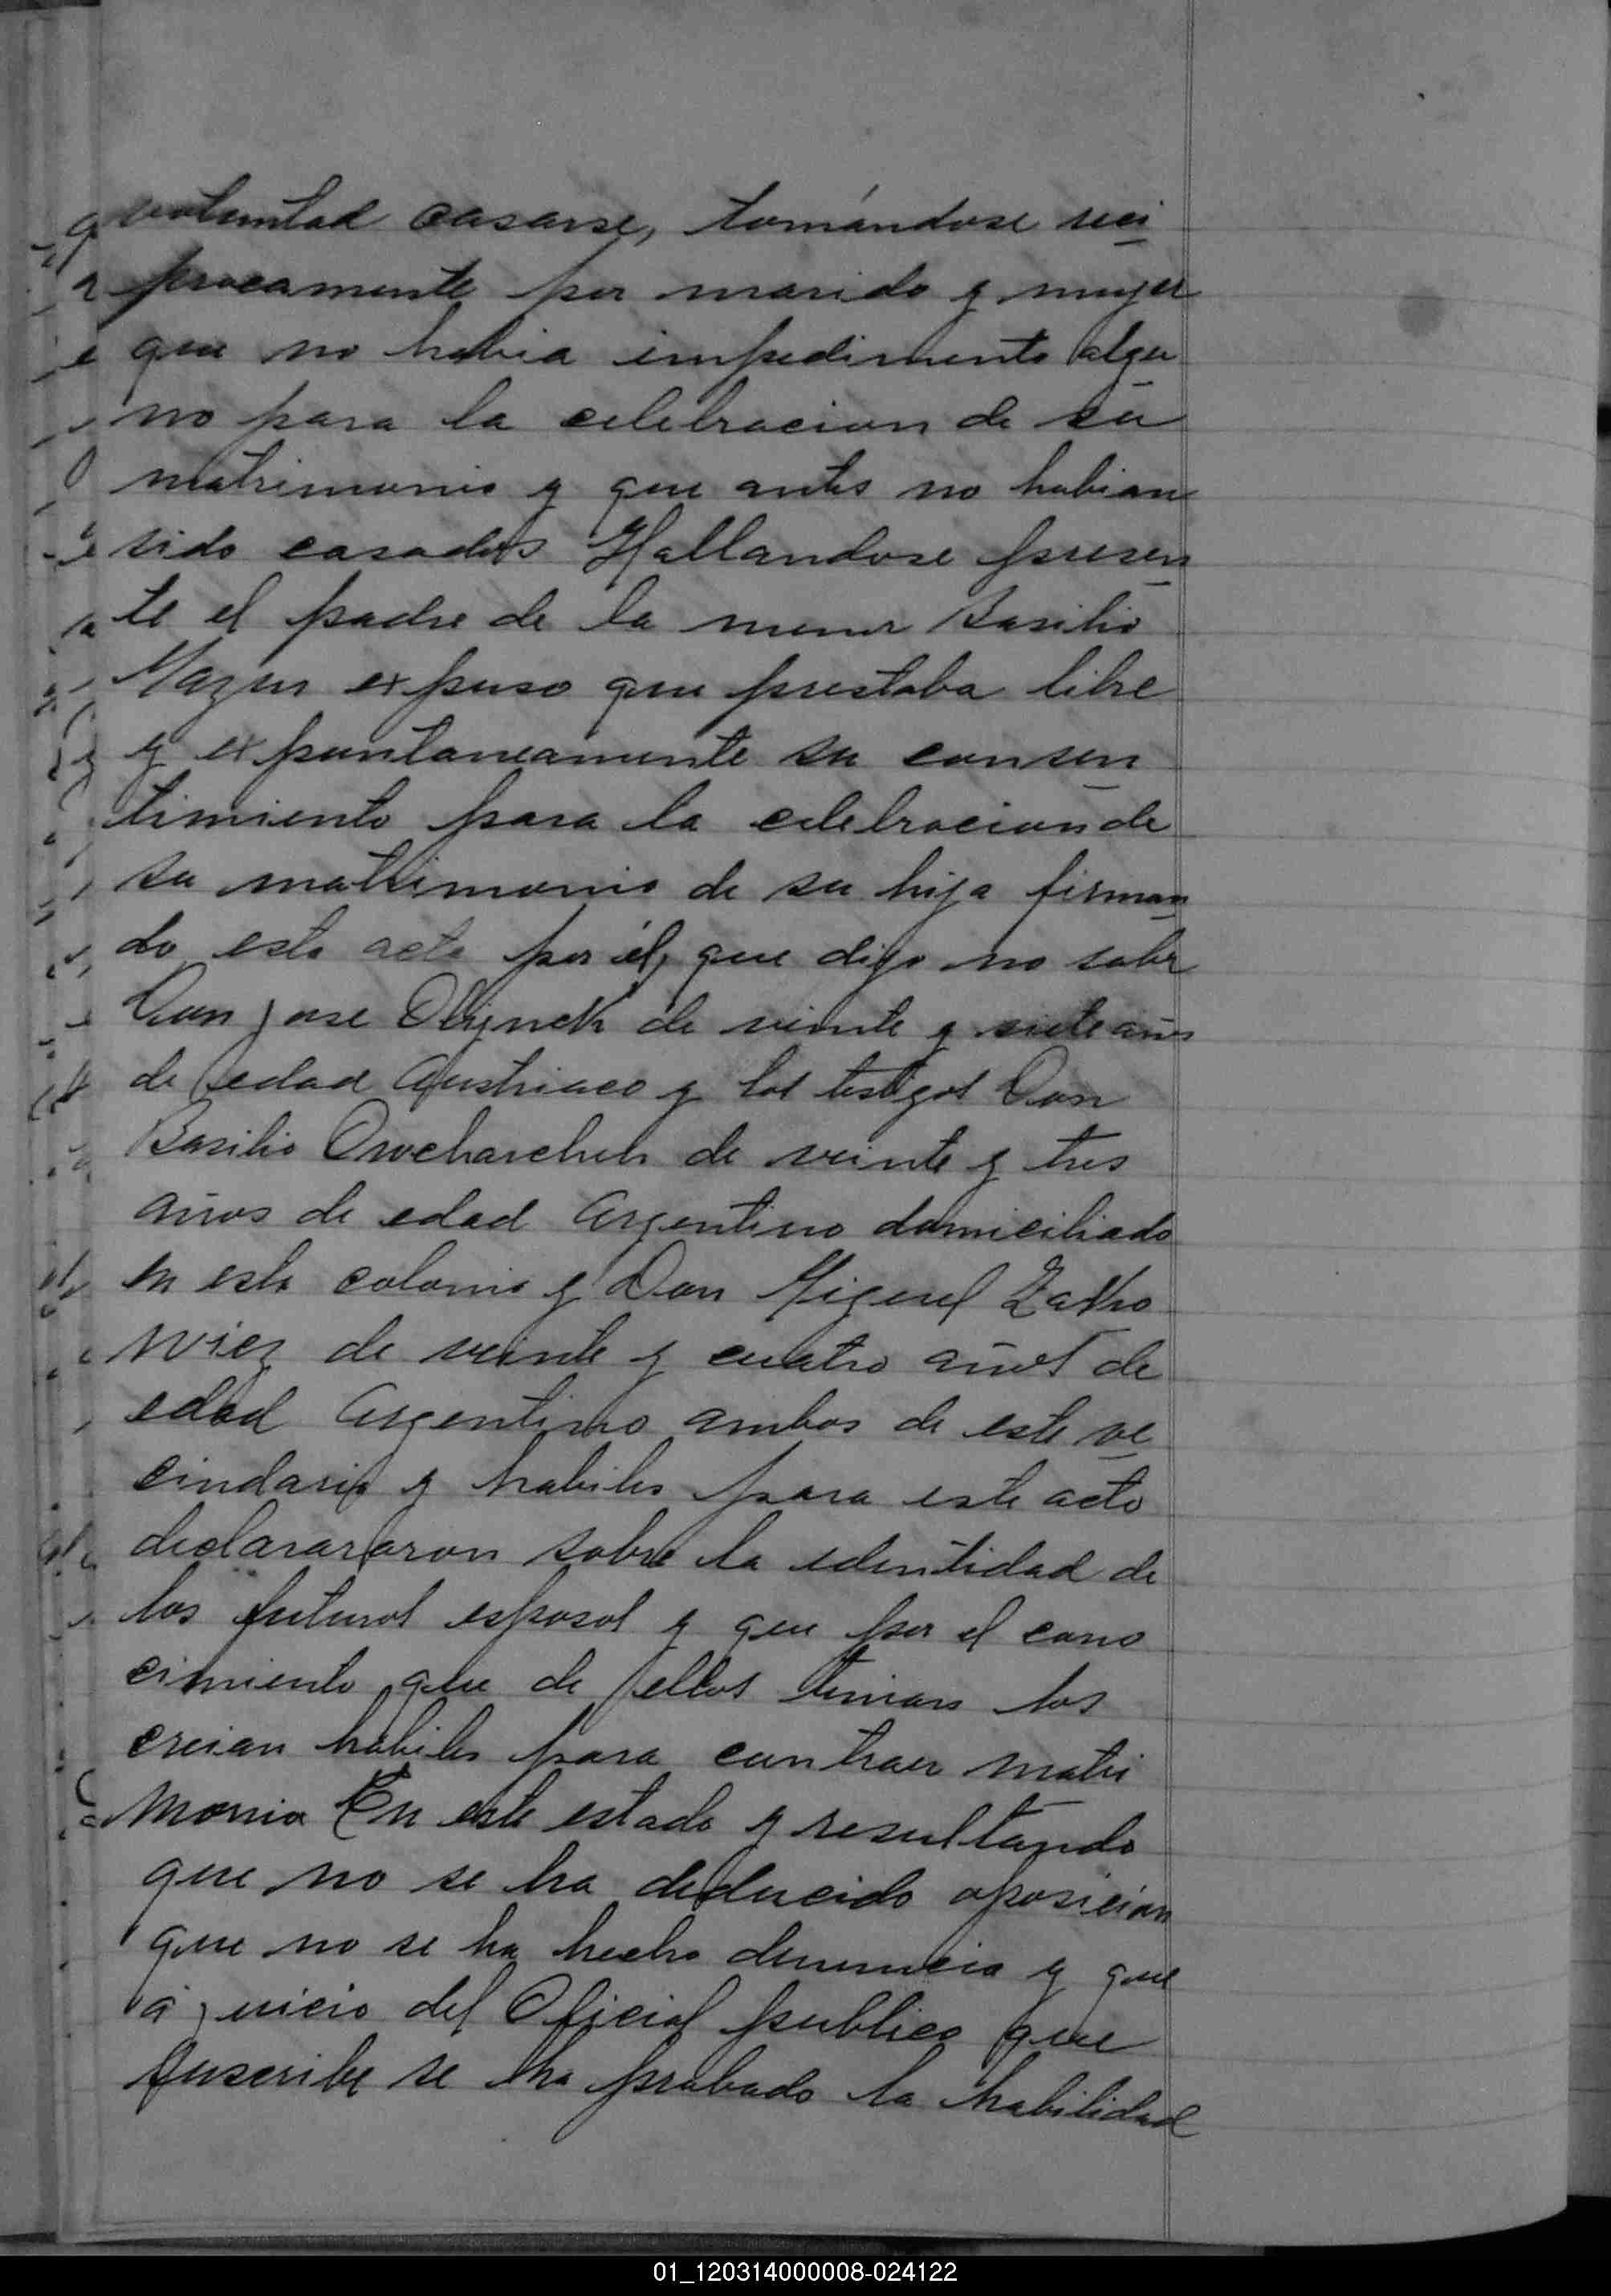 voluntad casarse, tomándose reci
procamente por marido y mujer
que no habia impedimento algu
no para la celebracion de su
matrimonio y que antes no habian
sido casados Hallandose presen
te el padre de la menor Basilio
Mazur expuso que prestaba libre
y expontaneamente su consen
timiento para la celebracion de
su matrimonio de su hija firman
do esta acta por él, que dijo no saber
Don Jose de veinte y siete años
de edad Austriaco y los testigos Don
Basilio de veinte y tres
años de edad Argentino domiciliado
en esta colonia y Don Miguel Zatko
wicz de veinte y cuatro años de
edad Argentino ambos de este ve
cindario y habiles para este acto
declarararon sobre la identidad de
los futuros esposos y que por el cono
cimiento que de ellos tenian los
creian habiles para contraer matri
monio En este estado y resultando
que no se ha deducido oposicion
que no se ha hecho denuncia y que
á juicio del Oficial publico que
suscribe se ha probado la habilidad
01_120314000008-024122